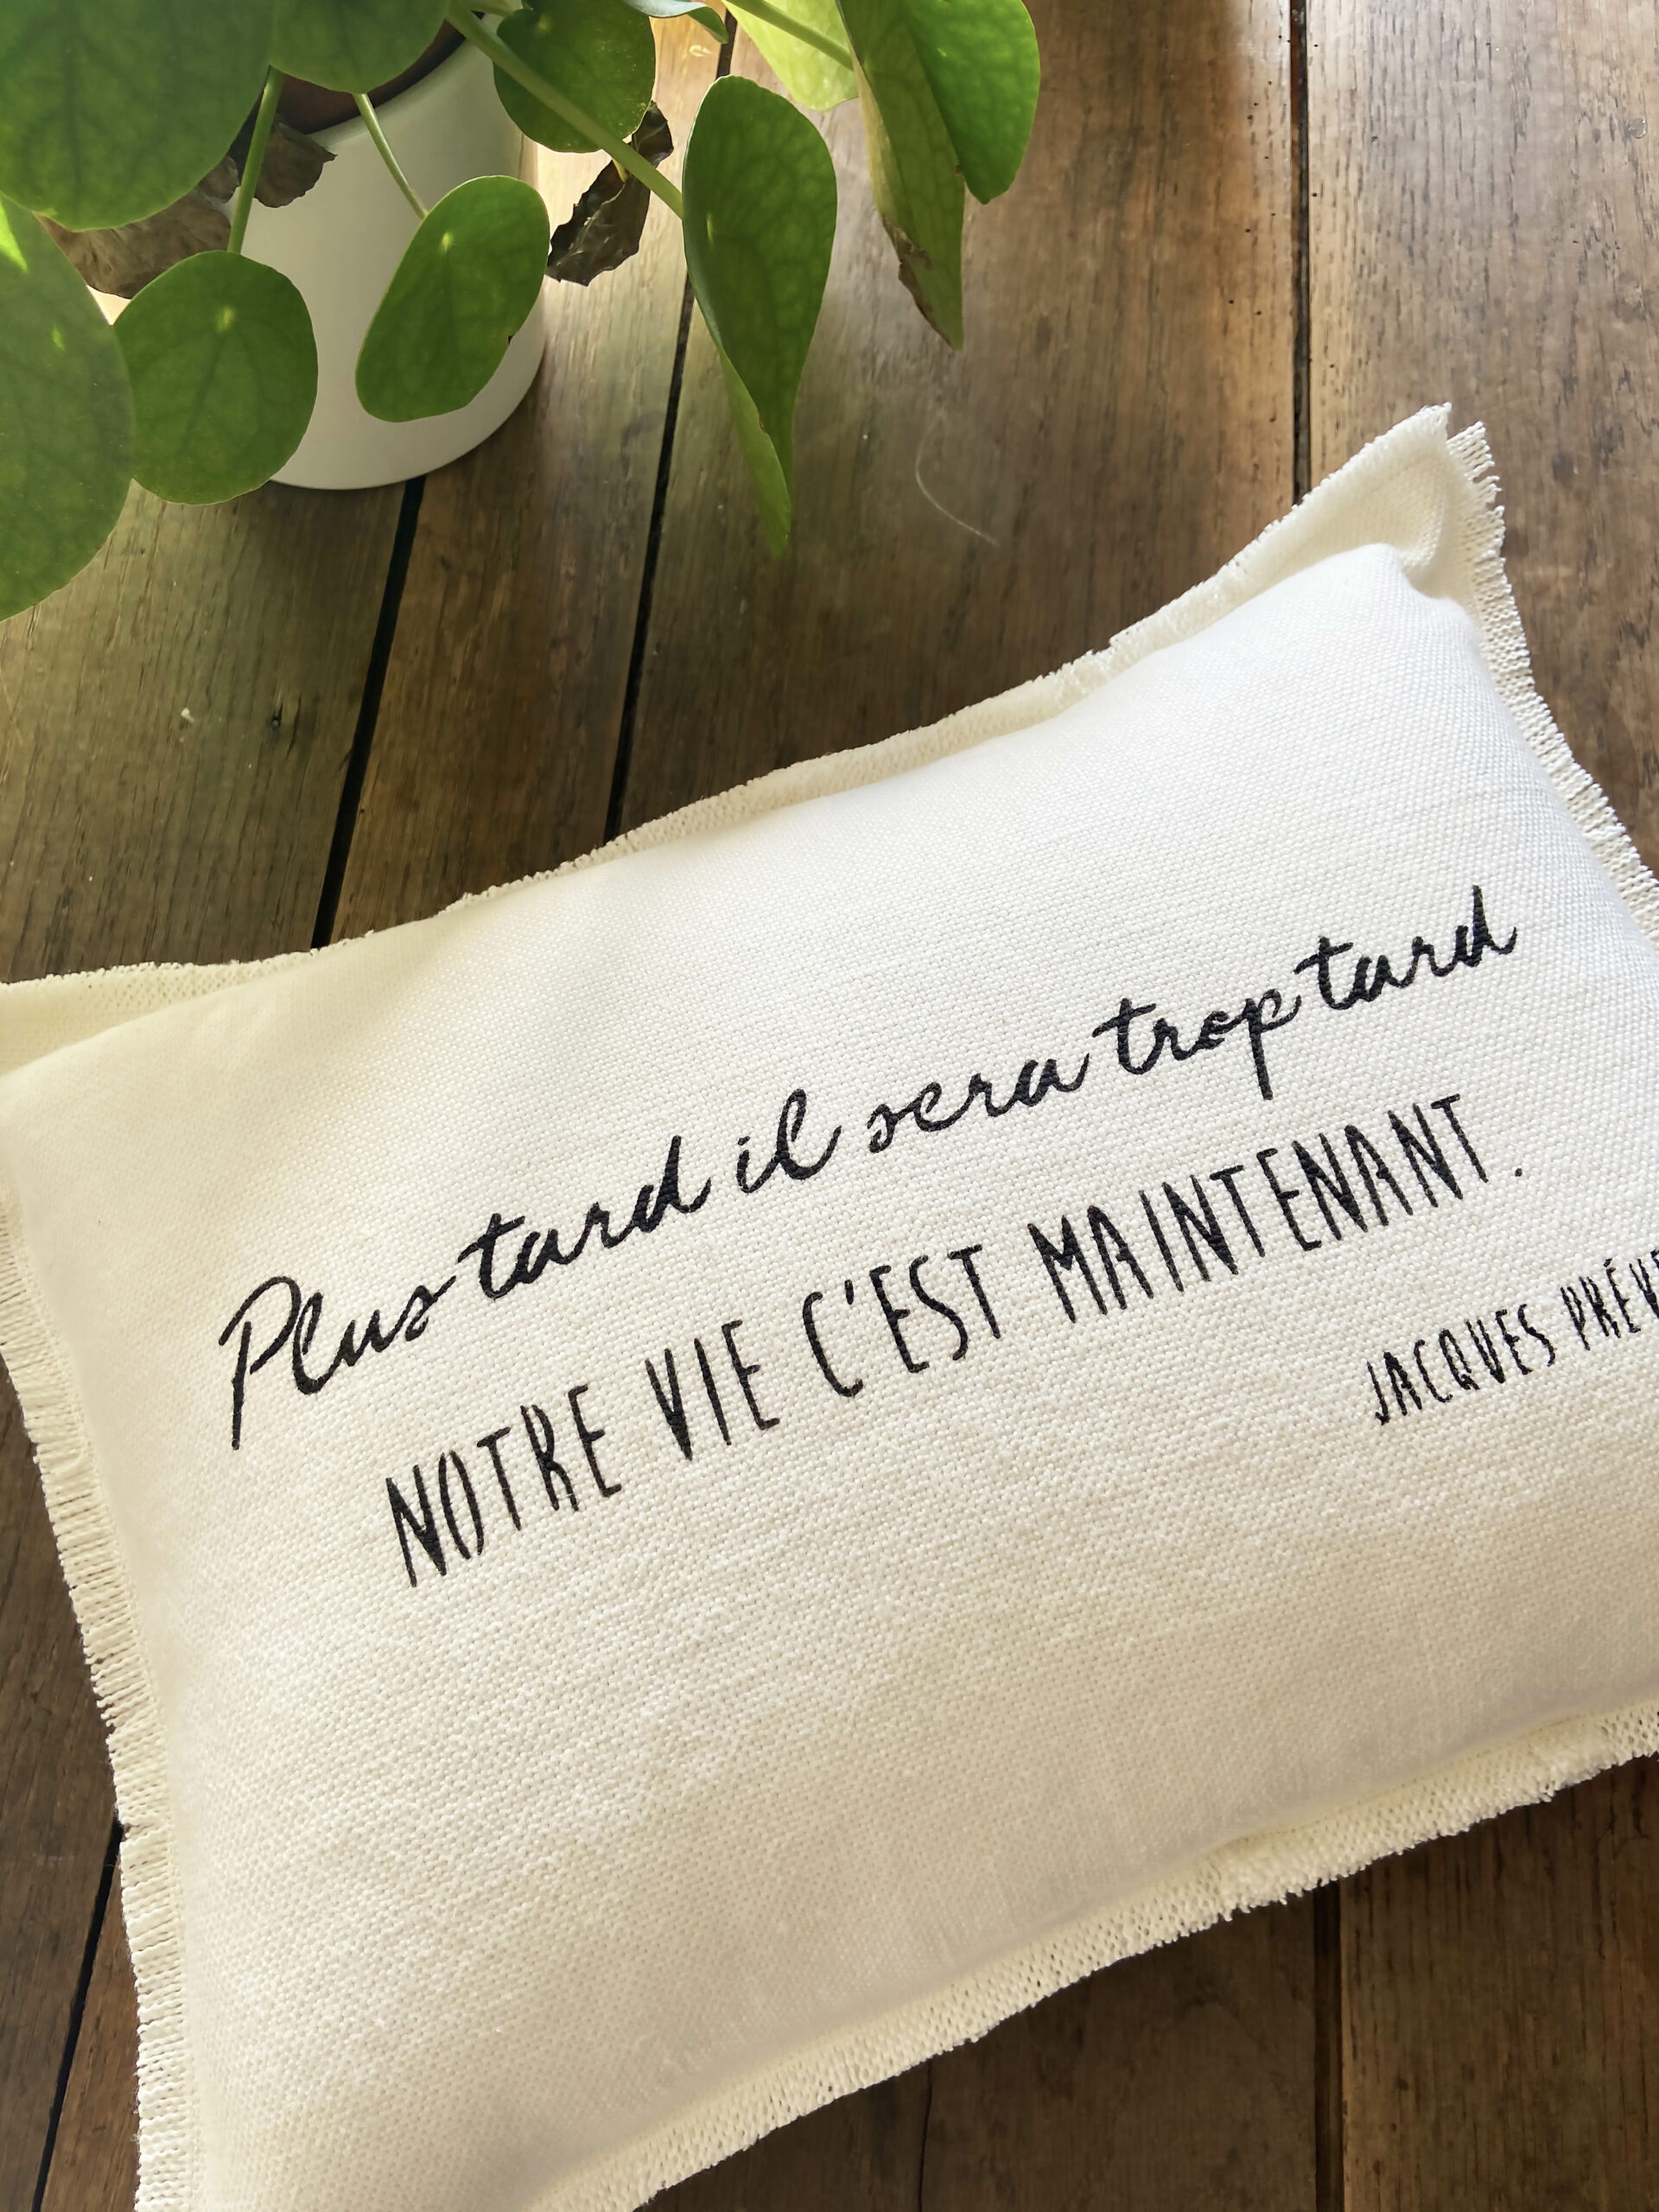 Plus tard il sera trop tard
NOTRE VIE C'EST MAINTENANT.
JACQUES PRÉVE